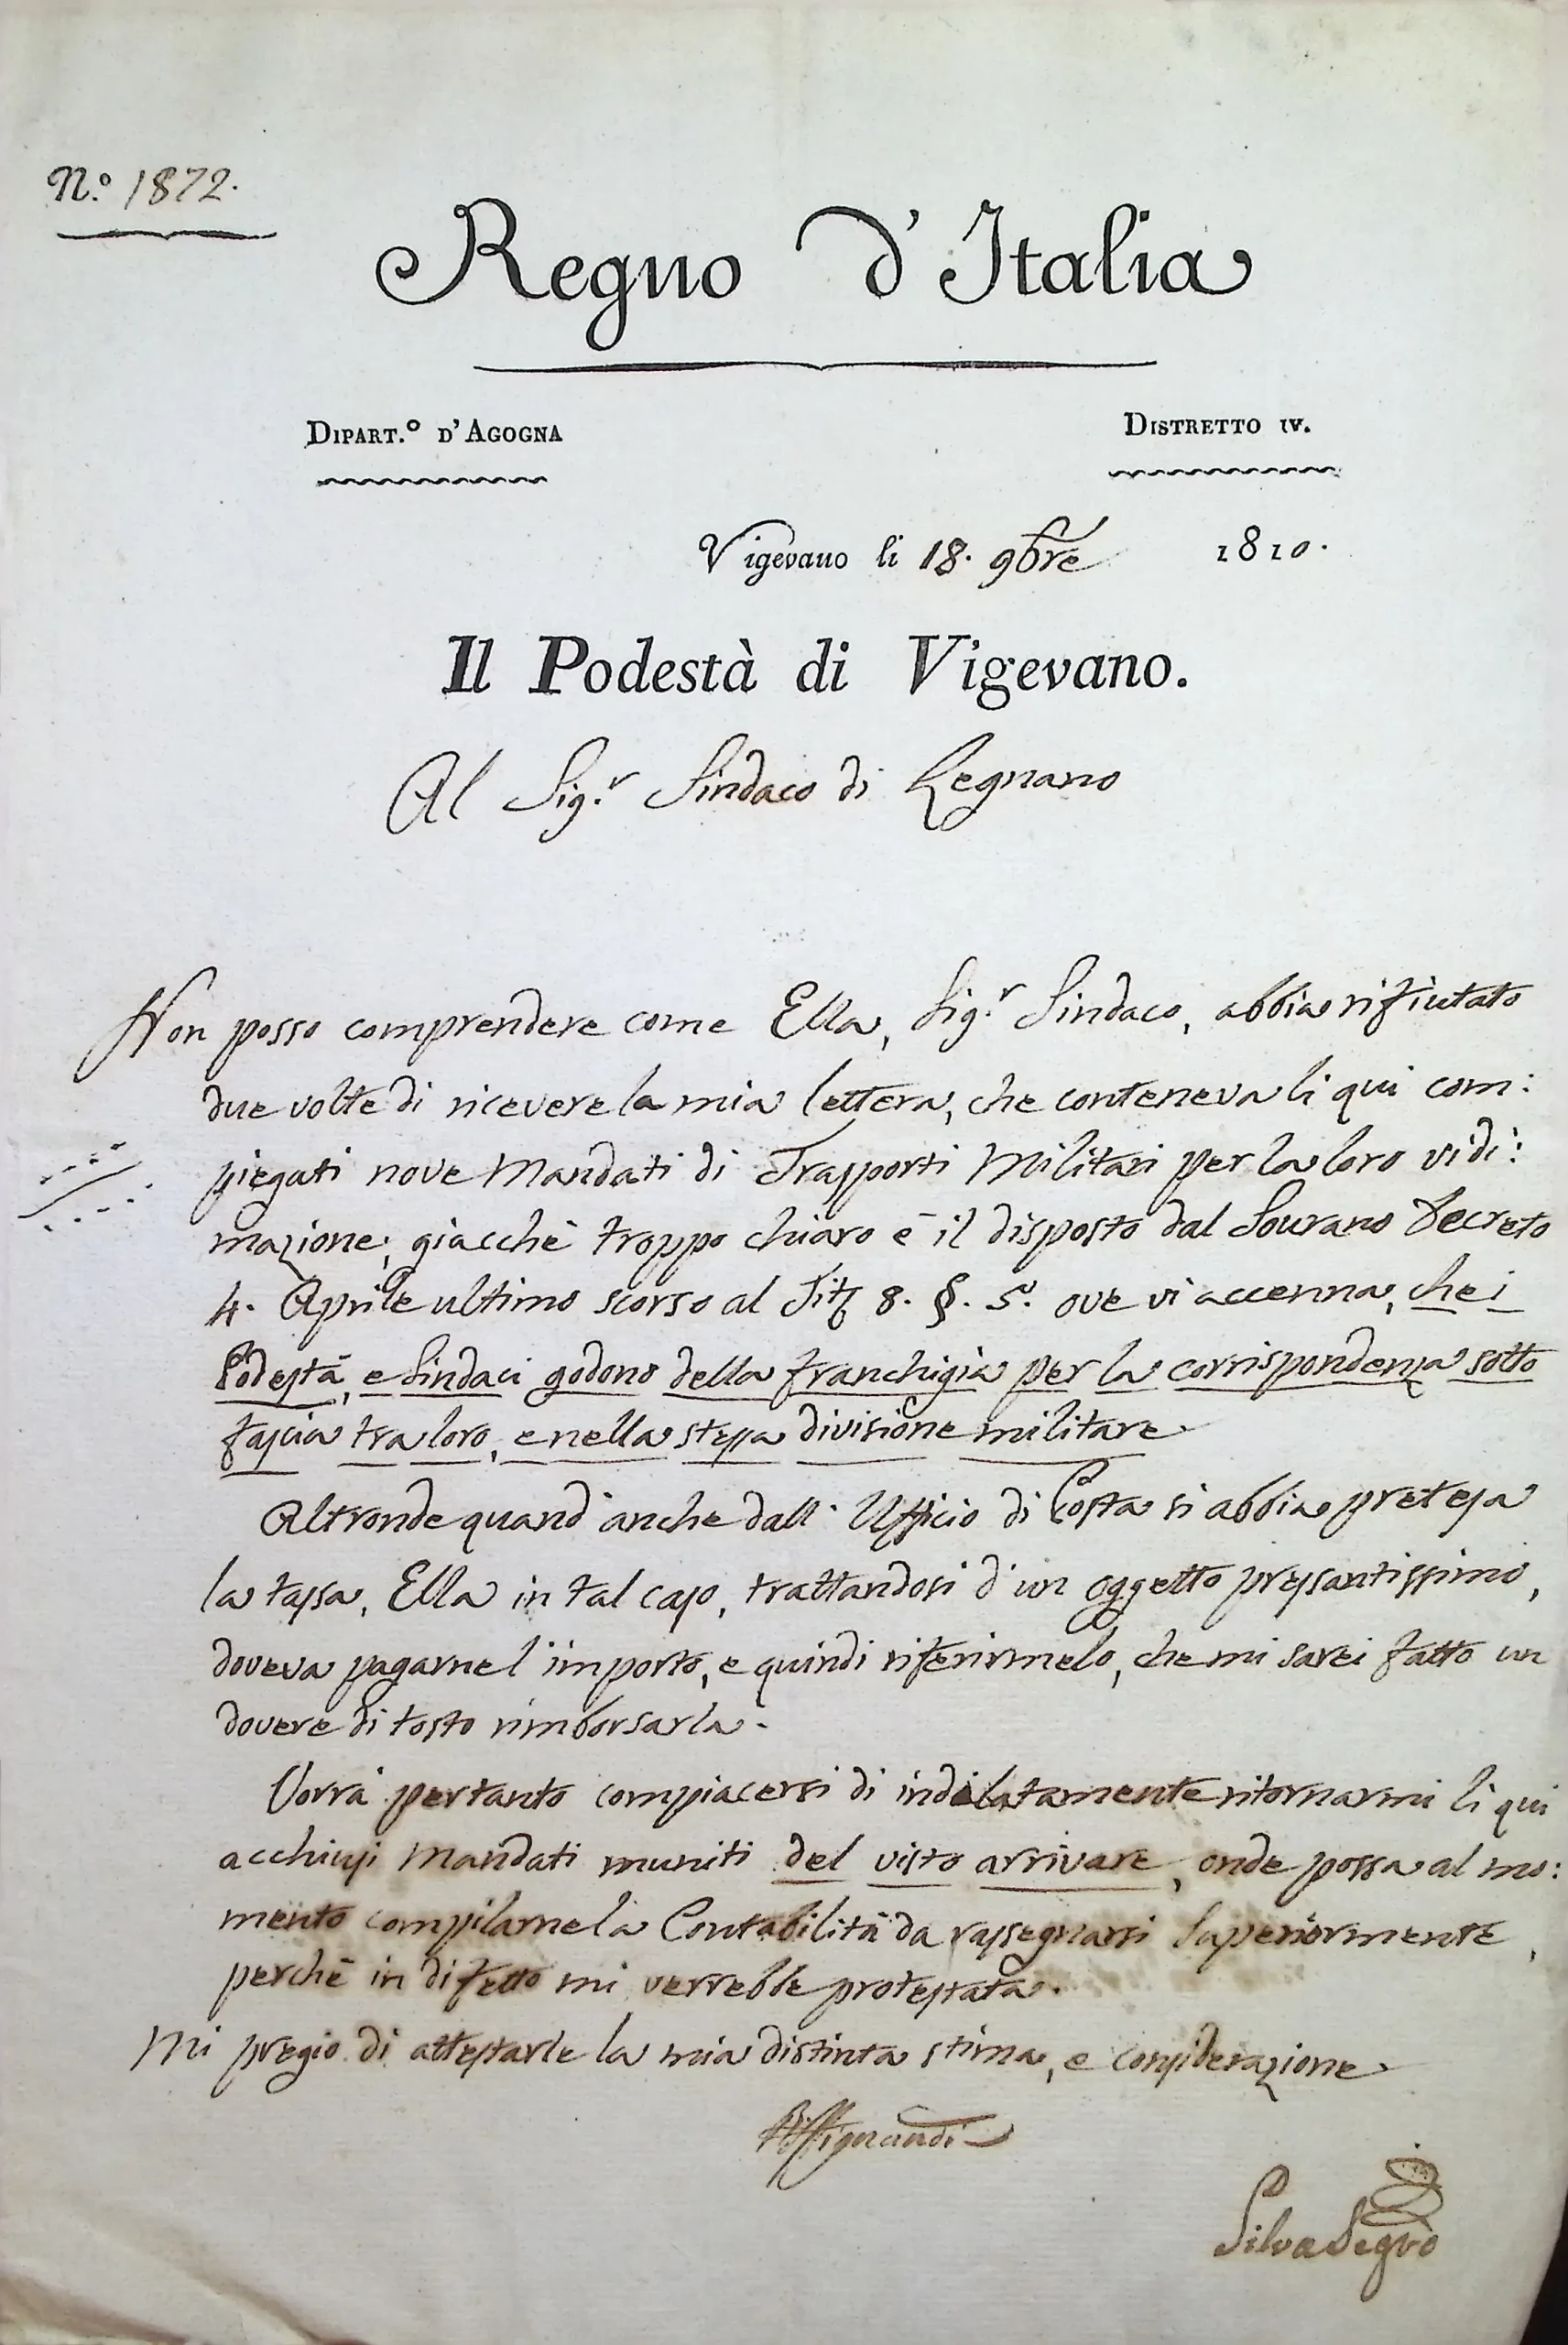 N.º 1872.
Regno d'Italia
Dipart.º d'Agogna
Distretto IV.
Vigevano li 18. 9bre 1810.
Il Podestà di Vigevano.
Al Sig.r Sindaco di Legnano
Non posso comprendere come Ella, Sig.r Sindaco, abbia rifiutato
due volte di ricevere la mia lettera, che conteneva li qui com:
piegati nove Mandati di Trasporti Militari per la loro vidi:
mazione; giacchè troppo chiaro è il disposto dal Sovrano Decreto
4. Aprile ultimo scorso al Tit. 8. §. 5. ove vi accenna, che i
Podestà, e Sindaci godono della franchigia per la corrispondenza sotto
fascia tra loro, e nella stessa divisione militare
Altronde quand'anche dall'Ufficio di Posta si abbia pretesa
la tassa, Ella in tal caso, trattandosi d'un oggetto pressantissimo,
doveva pagarne l'importo, e quindi riferirmelo, che mi sarei fatto un
dovere di tosto rimborsarla.
Vorrà pertanto compiacersi di indilatamente ritornarmi li qui
acchiusi Mandati muniti del visto arrivare, onde possa al mo:
mento compilarne la Contabilità da rassegnarsi Superiormente,
perchè in difetto mi verrebbe protestata.
Mi pregio di attestarle la mia distinta stima, e considerazione
Silva Segrò